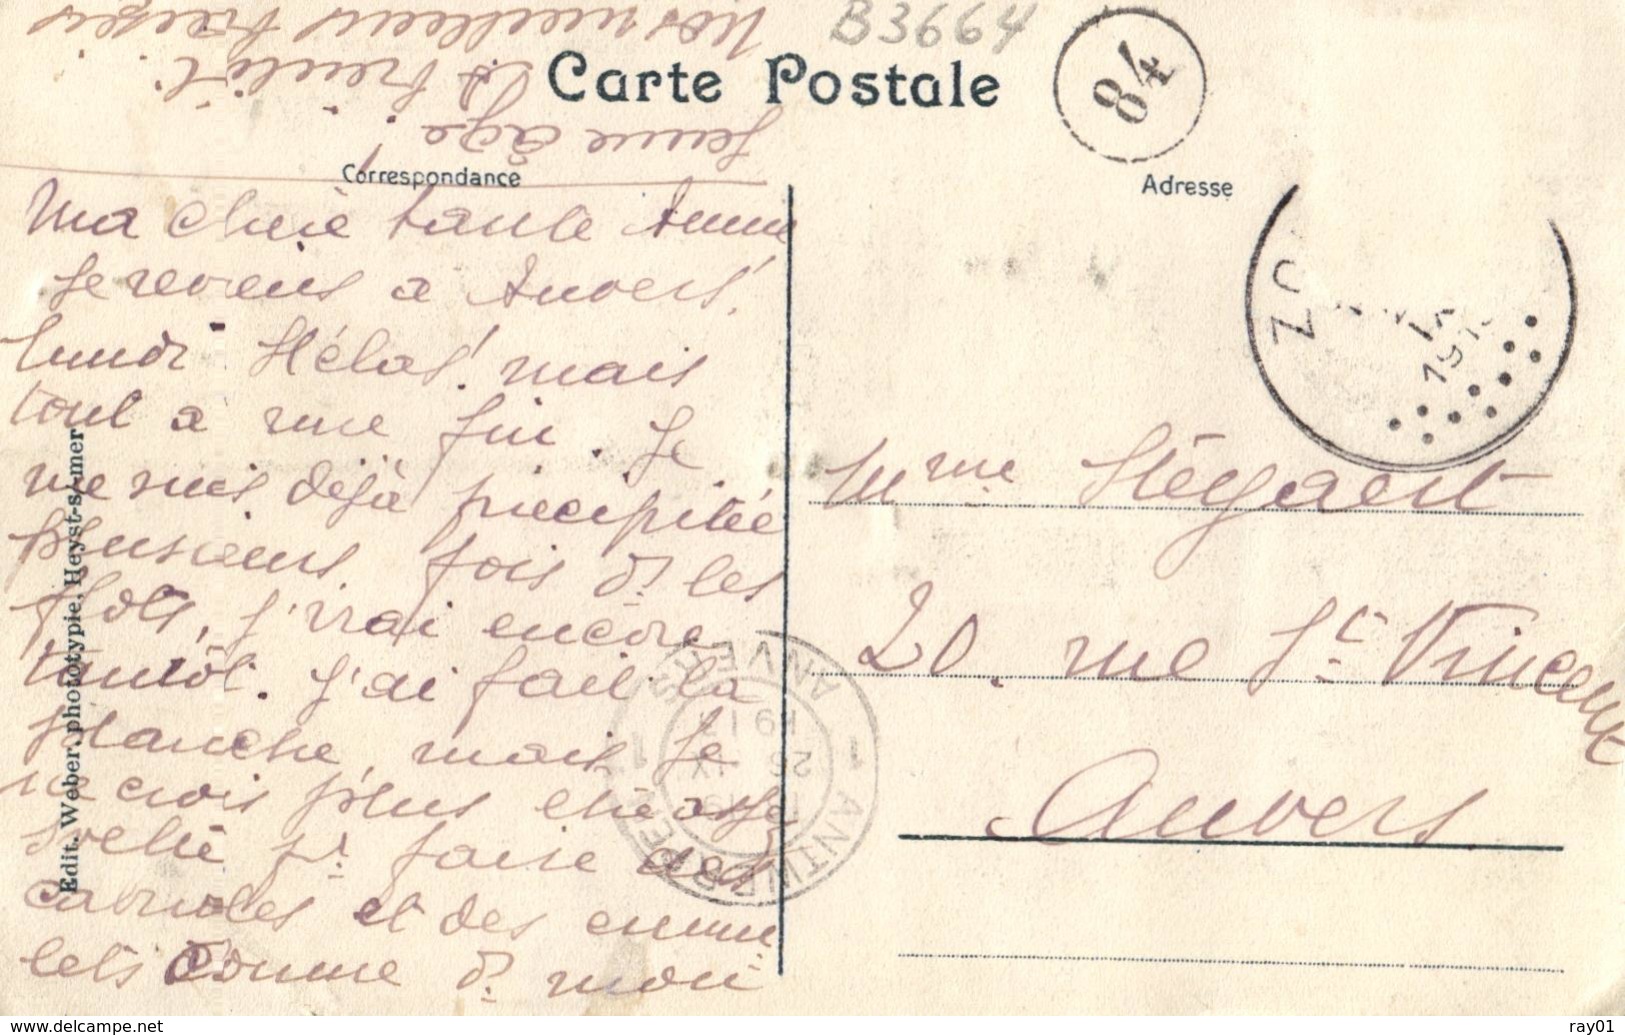 B3664
Carte Postale
84
Correspondance
Adresse
Ma chère tante Anna
Je reviens a Anvers
lundi Hélas! mais
tout a une fin. Je
me suis déjà précipitée
plusieurs fois ds les
flots, j'irai encore
tantôt. J'ai fait la
planche, mais je
ne crois plus être assez
svelte pr faire des
cabrioles et des
comme ds mon
jeune âge.
Nos meilleurs baisers
Mme Stégaert
20. rue St Vincent
Anvers
Edit. Weber, phototypie, Heyst-s/-mer
ZO
191
ANVERS
1 ANTWERPEN 1
26
IX
www.delcampe.net
ray01